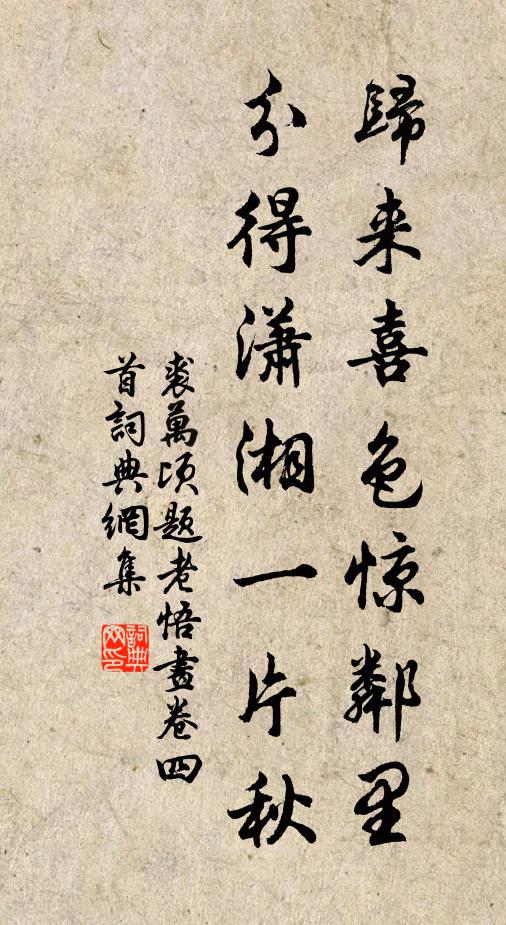 歸来喜色惊鄰里
分得瀟湘一片秋
裘萬頃题老悟畫卷四
首詞典網集
詞典
网印